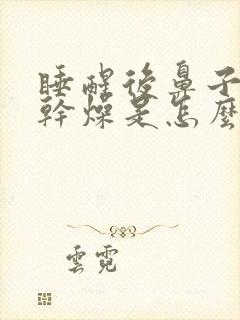 睡醒後鼻子
幹燥是怎麼
雲霓